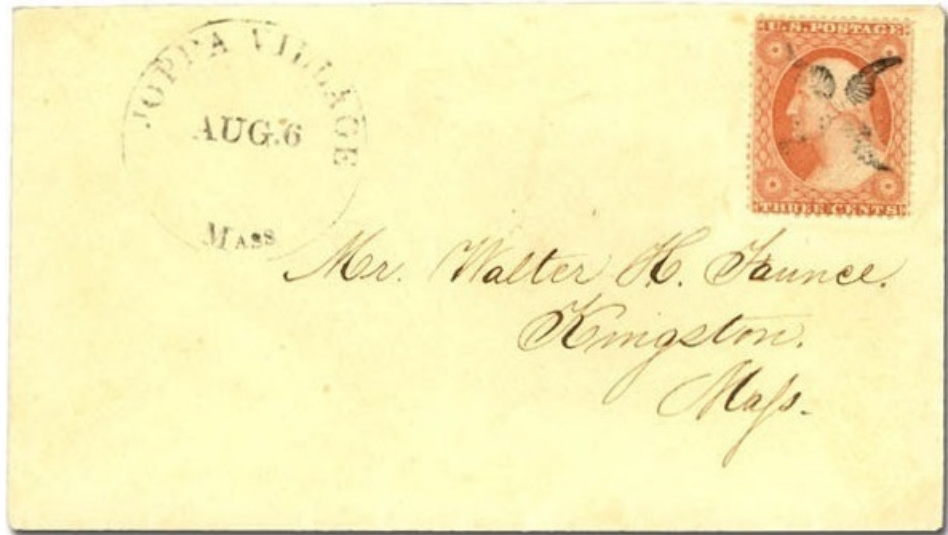 JOPPA VILLAGE
AUG. 6
MASS
U.S. POSTAGE
THREE CENTS
Mr. Walter H. Faunce.
Kingston.
Maſs.